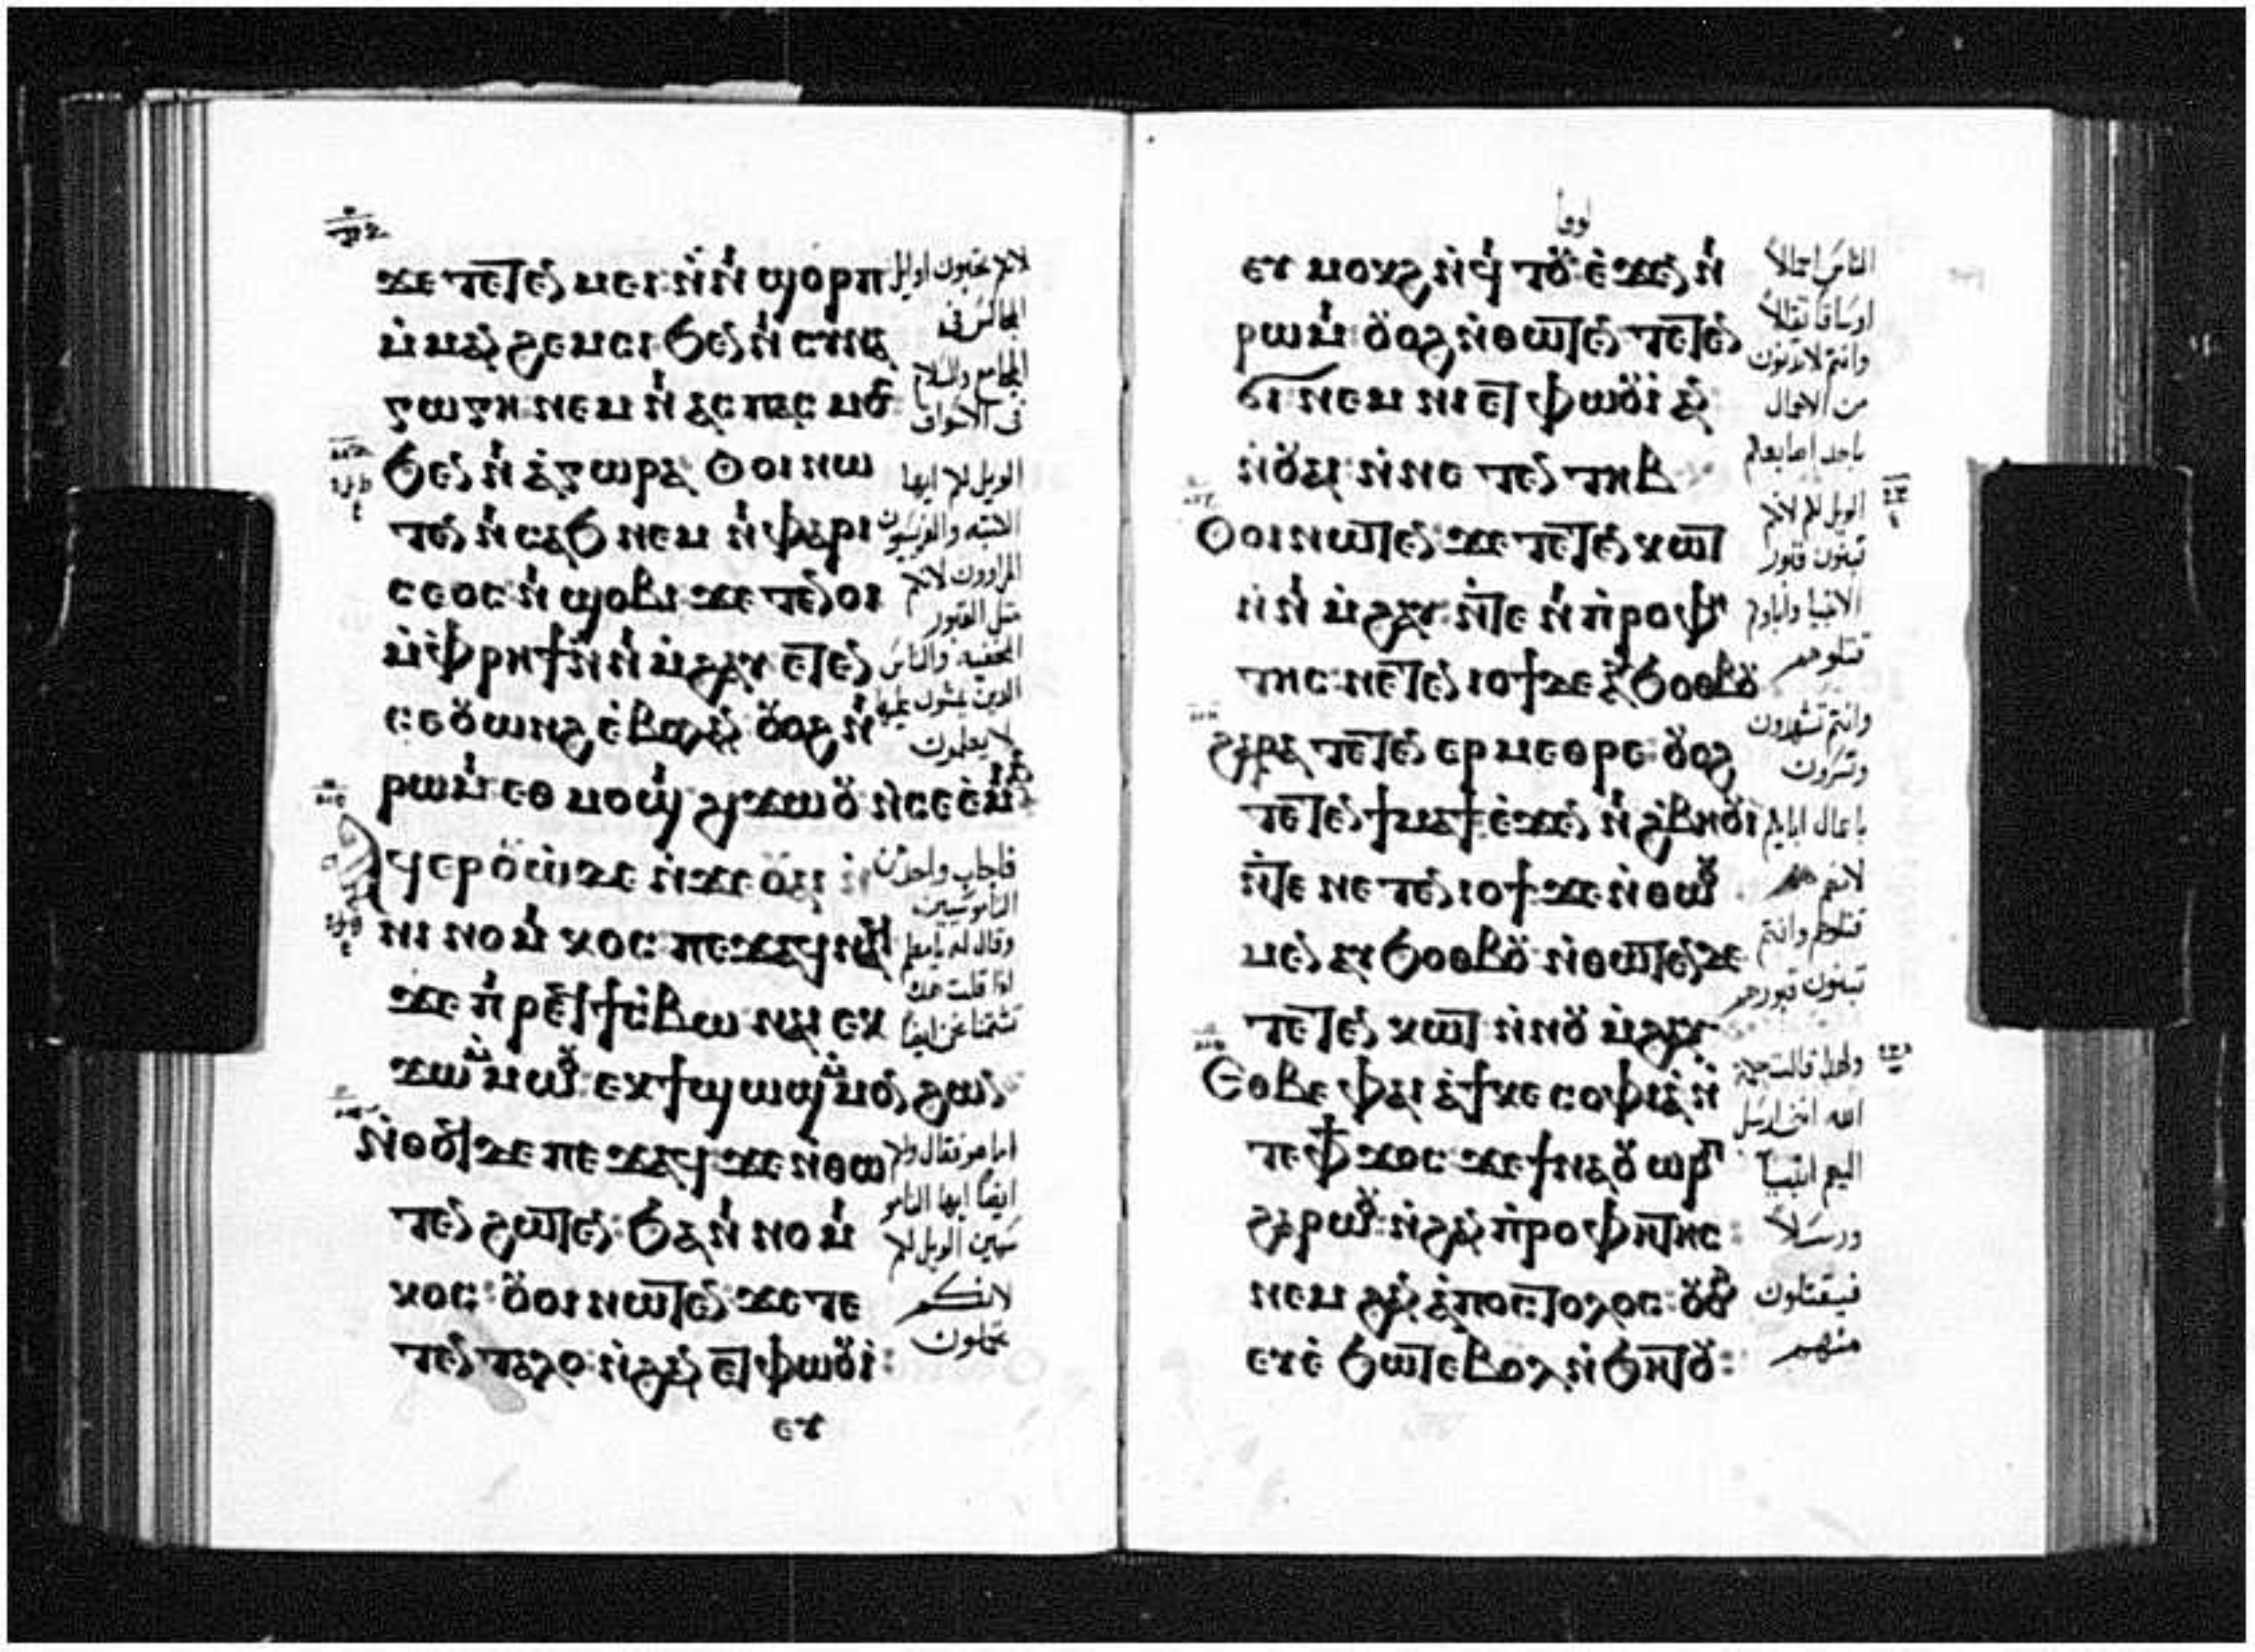 ϫⲉ ⲧⲉⲧⲉⲛ ⲙⲉⲓ ⲛ̀ⲛⲓ ϣⲟⲣⲡ
ⲙ̀ⲙⲁⲛ̀ϩⲉⲙⲥⲓ ϧⲉⲛ ⲛⲓ ⲥⲩⲛⲁ
ⲅⲱⲅⲏ ⲛⲉⲙ ⲛⲓ ⲁⲥⲡⲁⲥⲙⲟⲥ
ϧⲉⲛ ⲛⲓ ⲁ̀ⲅⲱⲣⲁ Ⲟⲩⲟⲓ ⲛⲱ
ⲧⲉⲛ ⲛⲓ ⲥⲁϧ ⲛⲉⲙ ⲛⲓ ⲫⲁⲣⲓ
ⲥⲉⲟⲥ ⲛⲓ ϣⲟⲃⲓ ϫⲉ ⲧⲉⲧⲉⲛⲟⲓ
ⲙ̀ⲫⲣⲏϯ ⲛ̀ⲛⲓ ⲙ̀ϩⲁⲩ ⲉⲧⲉⲛ
ⲥⲉⲟⲩⲱⲛϩ ⲉ̀ⲃⲟⲗ ⲁⲛ ⲟⲩⲟϩ ⲛⲓ
ⲣⲱⲙⲓ ⲉⲑ ⲙⲟϣⲓ ϩⲓϫⲱⲟⲩ ⲛ̀ⲥⲉⲉ̀ⲙⲓ ⲁⲛ
ϥⲉⲣⲟⲩⲱ̀ ⲇⲉ ⲛ̀ϫⲉ ⲟⲩⲁⲓ ⲛ̀
ⲛⲓ ⲛⲟⲙⲓⲕⲟⲥ ⲡⲉϫⲁϥ ⲛⲁϥ
ϫⲉ ⲡⲓ ⲣⲉϥϯⲥ̀ⲃⲱ ⲛⲁⲓ ⲉⲕ
ϫⲱ ⲙ̀ⲙⲱⲟⲩ ⲉⲕϯϣⲱϣ ⲙ̀ⲙⲟⲛ ϩⲱⲛ
Ⲛ̀ⲑⲟϥ ⲇⲉ ⲡⲉϫⲁϥ ϫⲉ ⲛ̀ⲑⲱ
ⲧⲉⲛ ϩⲱⲧⲉⲛ ϧⲁ ⲛⲓ ⲛⲟⲙⲓ
ⲕⲟⲥ ⲟⲩⲟⲓ ⲛⲱⲧⲉⲛ ϫⲉ ⲧⲉ
ⲧⲉⲛ ⲧⲁⲗⲟ ⲛ̀ϩⲁⲛ ⲉⲧⲫⲱⲟⲩⲓ
ⲉⲩ
لانكم تحبون اوايل
المجالس في
المجامع والسلام
في الاسواق
الويل لكم ايها
الكتبه والفريسيون
المراوون لانكم
مثل القبور
المخفيه والناس
الذين يمشون عليها
لا يعلمون
فاجاب واحد من
الناموسيين
وقال له يا معلم
اذا قلت هذا
تشتمنا نحن ايضا
اما هو فقال ولكم
ايضا ايها النامو
سيين الويل لكم
لانكم
تحملون
لوقا
ⲉⲩ ⲙⲟⲕϩ ⲛ̀ϥⲓ ⲧⲟⲩ ⲉ̀ϫⲉⲛ ⲛⲓ
ⲣⲱⲙⲓ ⲟⲩⲟϩ ⲛ̀ⲑⲱⲧⲉⲛ ⲧⲉⲧⲉⲛ
ϭⲓ ⲛⲉⲙ ⲛⲓ ⲉⲧⲫⲱⲟⲩⲓ ⲁⲛ
ⲛ̀ⲟⲩⲁⲓ ⲛ̀ⲛⲉ ⲧⲉⲛ ⲧⲏⲃ
Ⲟⲩⲟⲓ ⲛⲱⲧⲉⲛ ϫⲉ ⲧⲉⲧⲉⲛ ⲕⲱⲧ
ⲛ̀ⲛⲓ ⲙ̀ϩⲁⲩ ⲛ̀ⲧⲉ ⲛⲓ ⲡ̀ⲣⲟⲫⲏ
ⲧⲏⲥ ⲛⲉⲧⲉⲛ ⲓⲟϯ ⲇⲉ ⲁⲩϧⲟⲑⲃⲟⲩ
ϩⲁⲣⲁ ⲧⲉⲧⲉⲛ ⲉⲣ ⲙⲉⲑⲣⲉ ⲟⲩⲟϩ
ⲧⲉⲧⲉⲛ ϯⲙⲁϯ ⲉ̀ϫⲉⲛ ⲛⲓ ϩ̀ⲃⲏⲟⲩⲓ
ⲛ̀ⲧⲉ ⲛⲉⲧⲉⲛ ⲓⲟϯ ϫⲉ ⲛ̀ⲑⲱⲟⲩ
ⲙⲉⲛ ⲁⲩϧⲟⲑⲃⲟⲩ ⲛ̀ⲑⲱⲧⲉⲛ ⲇⲉ
ⲧⲉⲧⲉⲛ ⲕⲱⲧ ⲛ̀ⲛⲟⲩ ⲙ̀ϩⲁⲩ
Ⲉⲑⲃⲉ ⲫⲁⲓ ⲁ̀ϯⲕⲉ ⲥⲟⲫⲓⲁ ⲛ̀
ⲧⲉ ⲫϯ ϫⲟⲥ ϫⲉ ϯⲛⲁⲟⲩⲱⲣⲡ
ϩⲁⲣⲱⲟⲩ ⲛ̀ϩⲁⲛ ⲡ̀ⲣⲟⲫⲏⲧⲏⲥ
ⲛⲉⲙ ϩⲁⲛ ⲁ̀ⲡⲟⲥⲧⲟⲗⲟⲥ ⲟⲩⲟϩ
ⲉⲩⲉ̀ ϧⲱⲧⲉⲃ ⲉⲃⲟⲗ ⲛ̀ϧⲏⲧⲟⲩ
الناس احمالا
اوساقا ثقالا
وانتم لا تدنون
من الاحمال
باحد اصابعكم
الويل لكم لانكم
تبنون قبور
الانبيا واباوكم
قتلوهم
وانتم تشهدون
وتسرون
باعمال ابايكم
لانهم هم
قتلوهم وانتم
تبنون قبورهم
ولهذا قالت حكمة
الله انني ارسل
اليهم انبيا
ورسلا
فيقتلون
منهم